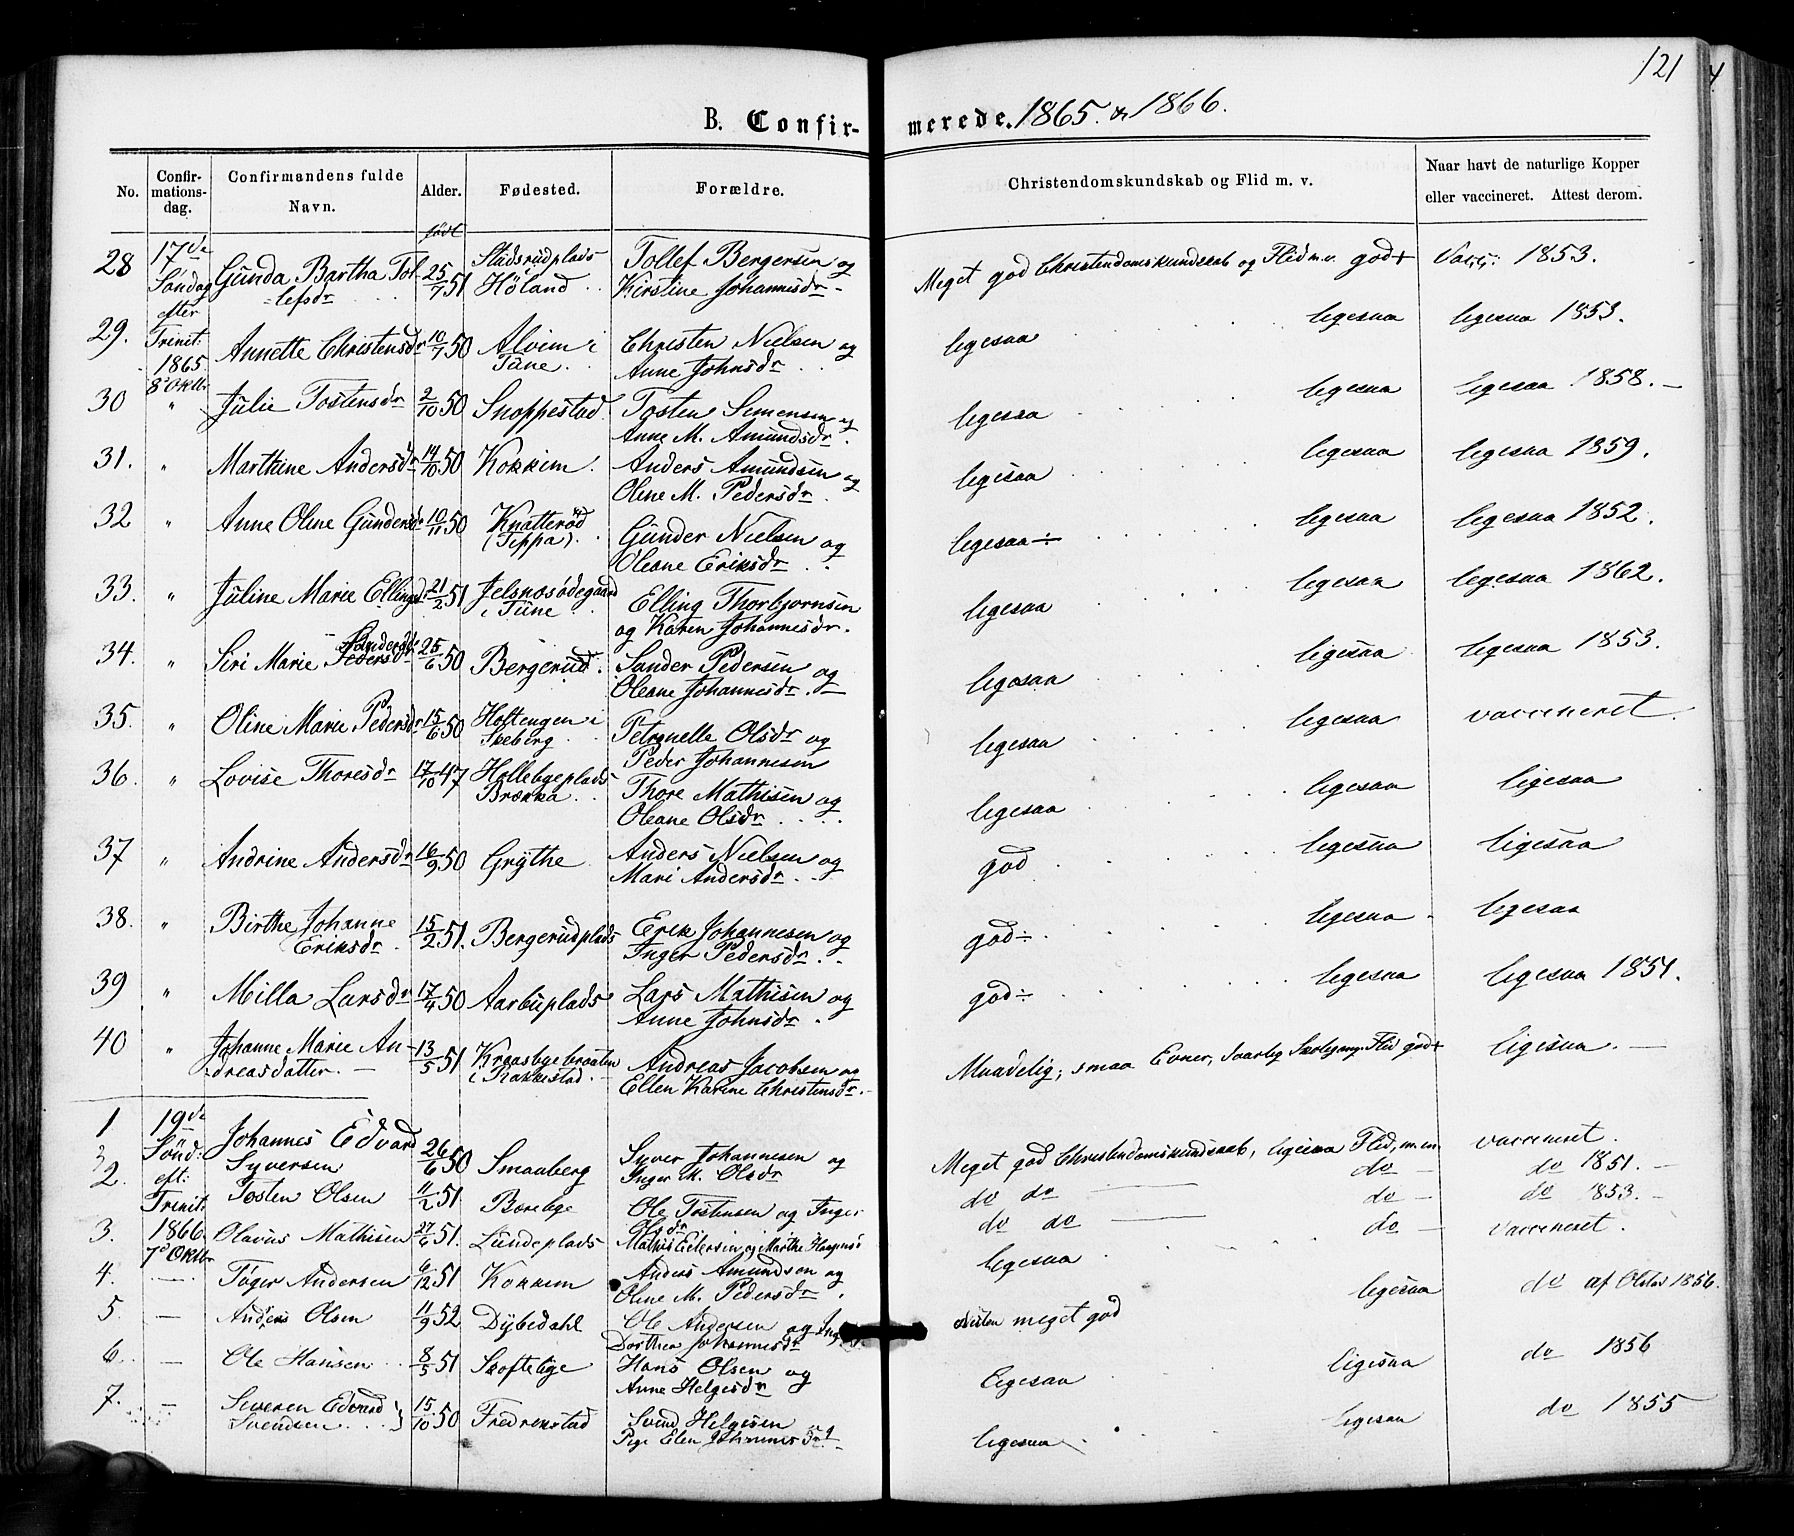 121
B. Confir- merede. 1865. & 1866.
No. Confir-mations-dag. Confirmandens fulde Navn. Alder. Fødested. Forældre. Christendomskundskab og Flid m. v. Naar havt de naturlige Kopper eller vaccineret. Attest derom.
født
28 17de Gunda Bartha Tol- 25/7 51 Stadsrudplads Tollef Bergersen og Meget god Christendomskundskab og Flid m.v. god+ Vacc: 1853.
Søndag lefsdr Høland Kirstine Johannisdr
efter
29. Trinit. Annette Christensdr 10/7 50 Alvim i Christen Nielsen og ligesaa ligesaa ligesaa 1853.
1865 Tune Anne Johnsdr
8de Oktbr
30 " Julie Tostensdr 2/10 50 Snoppestad Tosten Semensen og ligesaa ligesaa ligesaa 1858.
Anne M. Amundsdr
31. " Marthine Andersdr 14/10 50 Kokkim Anders Amundsen og ligesaa ligesaa ligesaa 1859.
Oline M. Pedersdr
32 " Anne Oline Gundersdr 10/11 50 Knatterød Gunder Nielsen og ligesaa ÷ ligesaa ligesaa 1852.
(Teppa) Oleane Eriksdr
33. " Juline Marie Ellingsd. 21/2 51 Jelsnæsødegaard Elling Thorbjørnsen ligesaa ligesaa ligesaa 1862.
i Tune og Karen Johannesdr.
34. " Siri Marie Pedersdr Sandersdr 25/6 50 Bergerud Sander Pedersen og ligesaa ligesaa ligesaa 1853.
Oleane Johannesdr
35. " Oline Marie Pedersdr 15/6 50 Holtengen i Petronelle Olsdr og ligesaa ligesaa vaccineret.
Skeberg Peder Johannesen
36. " Lovise Thoresdr 17/10 47 Hollebyeplads Thore Mathisen og ligesaa ligesaa ligesaa
Brække Oleane Olsdr
37 " Andrine Andersdr 16/9 50 Grythe Anders Nielsen og god ligesaa ligesaa
Mari Andersdr
38. " Birthe Johanne 15/2 51. Bergerudplads Erik Johannesen og god ÷ ligesaa ligesaa
Eriksdr Inger Pedersdr
39 " Milla Larsdr 17/4 50 Aarbuplads Lars Mathisen og god ÷ ligesaa ligesaa 1851.
Anne Johnsdr
40 " Johanne Marie An- 13/5 51 Kraasbybraaten Andreas Jacobsen og Maadelig; smaa Evner, daarlig Skolegang. Flid god+ ligesaa.
dreasdatter i Rakkestad Ellen Karine Christensdr
1 19de Johannes Edvard 26/6 50 Smaaberg Syver Johannesen og Meget god Christendomskundskab, ligesaa Flid, m.m. vaccineret.
Sønd: Syversen Inger M. Olsdr
2. eft: Tosten Olsen 11/2 51. Borebye Ole Tostensen og Inger Olsdr do do do do 1851.
Trinit:
3. 1866. Olavus Mathisen 27/6 51. Lundeplads Mathis Petersen og Marthe do do do do 1853.
7de Oktbr
4. — Toger Andersen 6/12 51 Kokkim Anders Amundsen og ligesaa do vaccineret.
Oline M. Pedersdr
5. — Anders Olsen 11/9 52 Dybedahl Ole Andersen og Næsten meget god ligesaa do af Olstad 1856.
Dorthea Johannesdr
6. — Ole Hansen 8/5 51 Skoftebye Hans Olsen og ligesaa ligesaa do 1856
Anne Helgesdr
7. — Severen Edvard 15/10 50 Fredrikstad Svend Helgesen ligesaa ligesaa do 1855
Svendsen Pige Elen